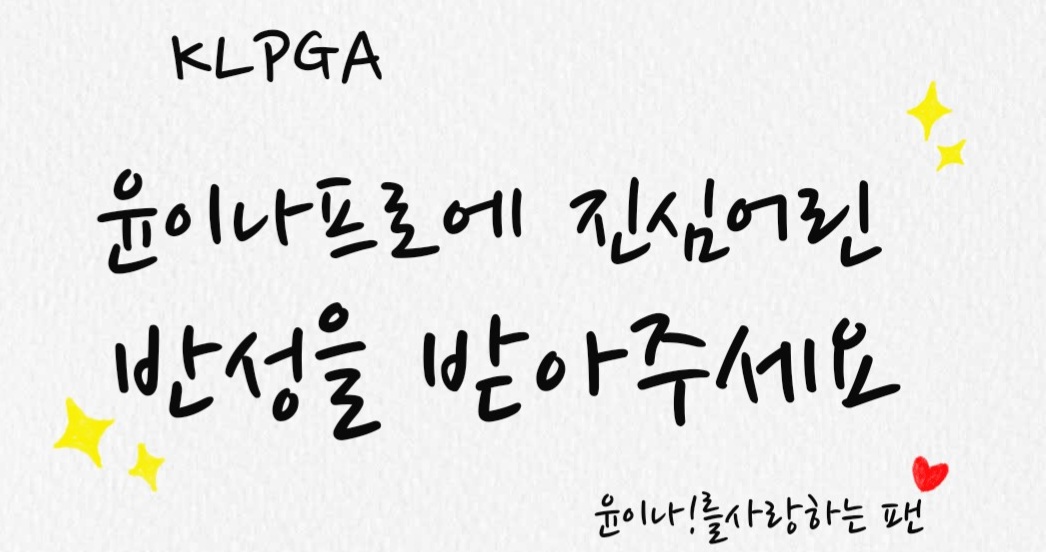 KLPGA
윤이나프로에 진심어린
반성을 받아주세요
윤이나!를사랑하는 팬